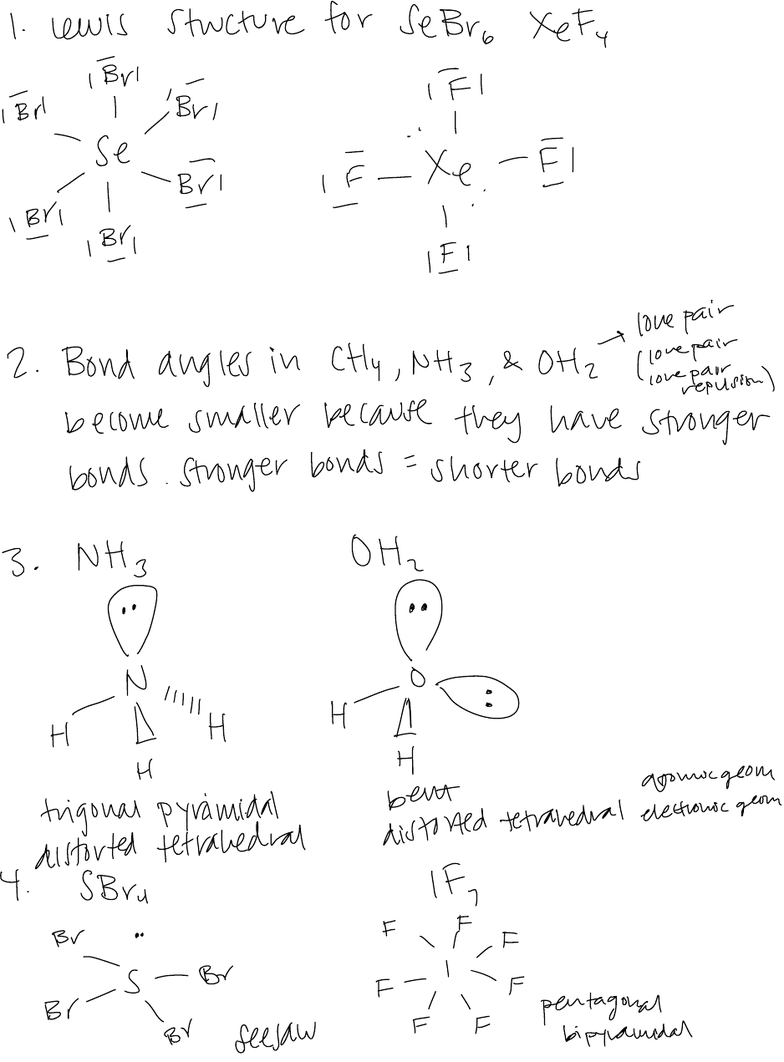 1. Lewis Structure for SeBr₆ XeF₄
Br Br Br
Se
Br Br Br
F
F Xe F
F
2. Bond angles in CH₄, NH₃, & OH₂ → lone pair
(lone pair
lone pair
repulsion)
become smaller because they have stronger
bonds. stronger bonds = shorter bonds
3. NH₃ OH₂
N O
H H H H
H
trigonal pyramidal bent atomic geom
distorted tetrahedral distorted tetrahedral electronic geom
4. SBr₄ IF₇
Br F F F
S Br F I F
Br Br F F
seesaw pentagonal
bipyramidal